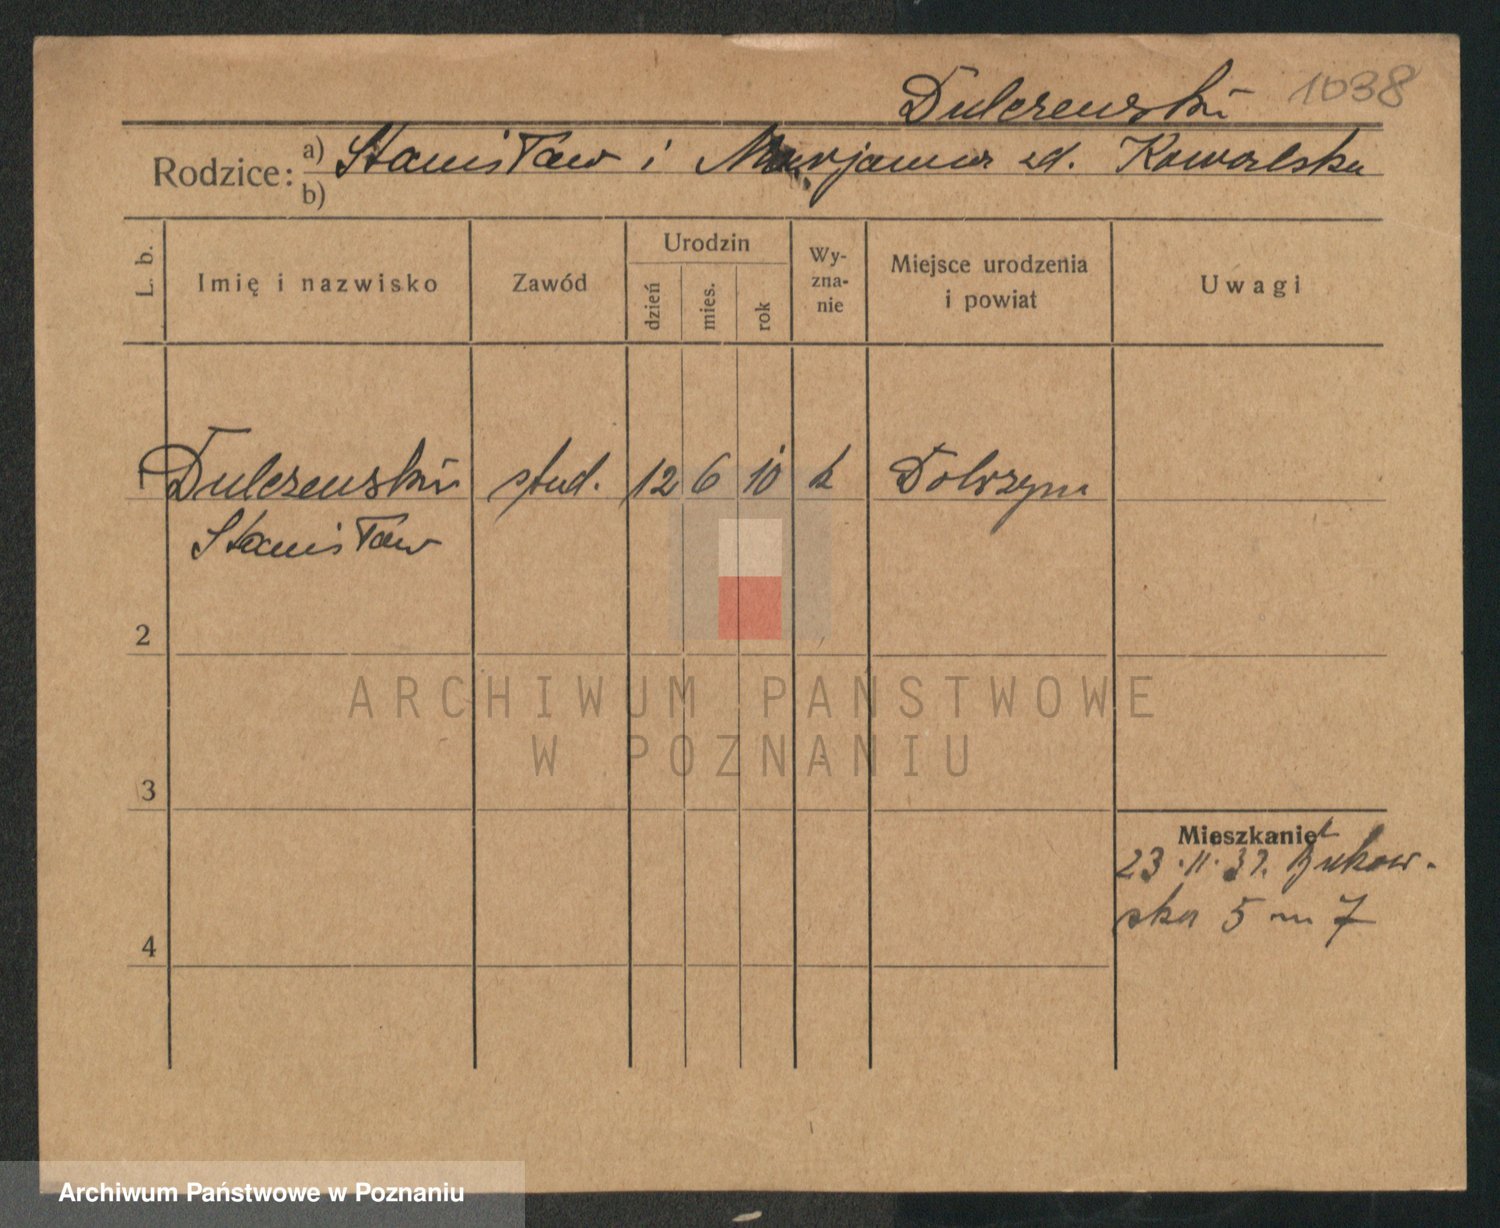 Dulczewski 1038
Rodzice: a) Stanisław i Marjanna zd. Kowalska
b)
L. b.
Imię i nazwisko
Zawód
Urodzin
dzień
mies.
rok
Wy-
zna-
nie
Miejsce urodzenia
i powiat
Uwagi
1 Dulczewski stud. 12 6 10 k
Stanisław
2
ARCHIWUM PAŃSTWOWE
W POZNANIU
3
Mieszkanie
23.11.37. Bukow-
ska 5 m 7
4
Archiwum Państwowe w Poznaniu